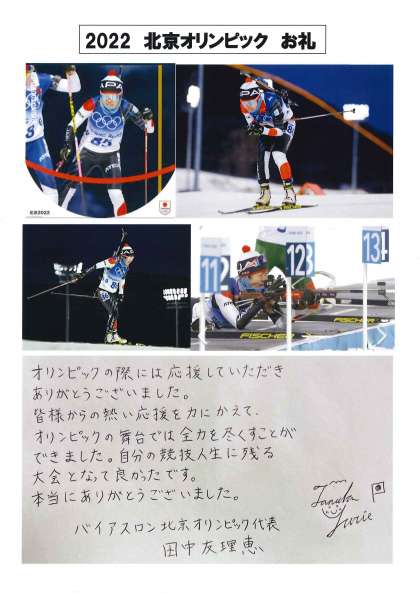 2022 北京オリンピック お礼
85
北京2022
112
123
134
FISCHER
オリンピックの際には応援していただき
ありがとうございました。
皆様からの熱い応援を力にかえて、
オリンピックの舞台では全力を尽くすことが
できました。自分の競技人生に残る
大会となって良かったです。
本当にありがとうございました。
バイアスロン北京オリンピック代表
田中友理恵
Tanaka
Yurie